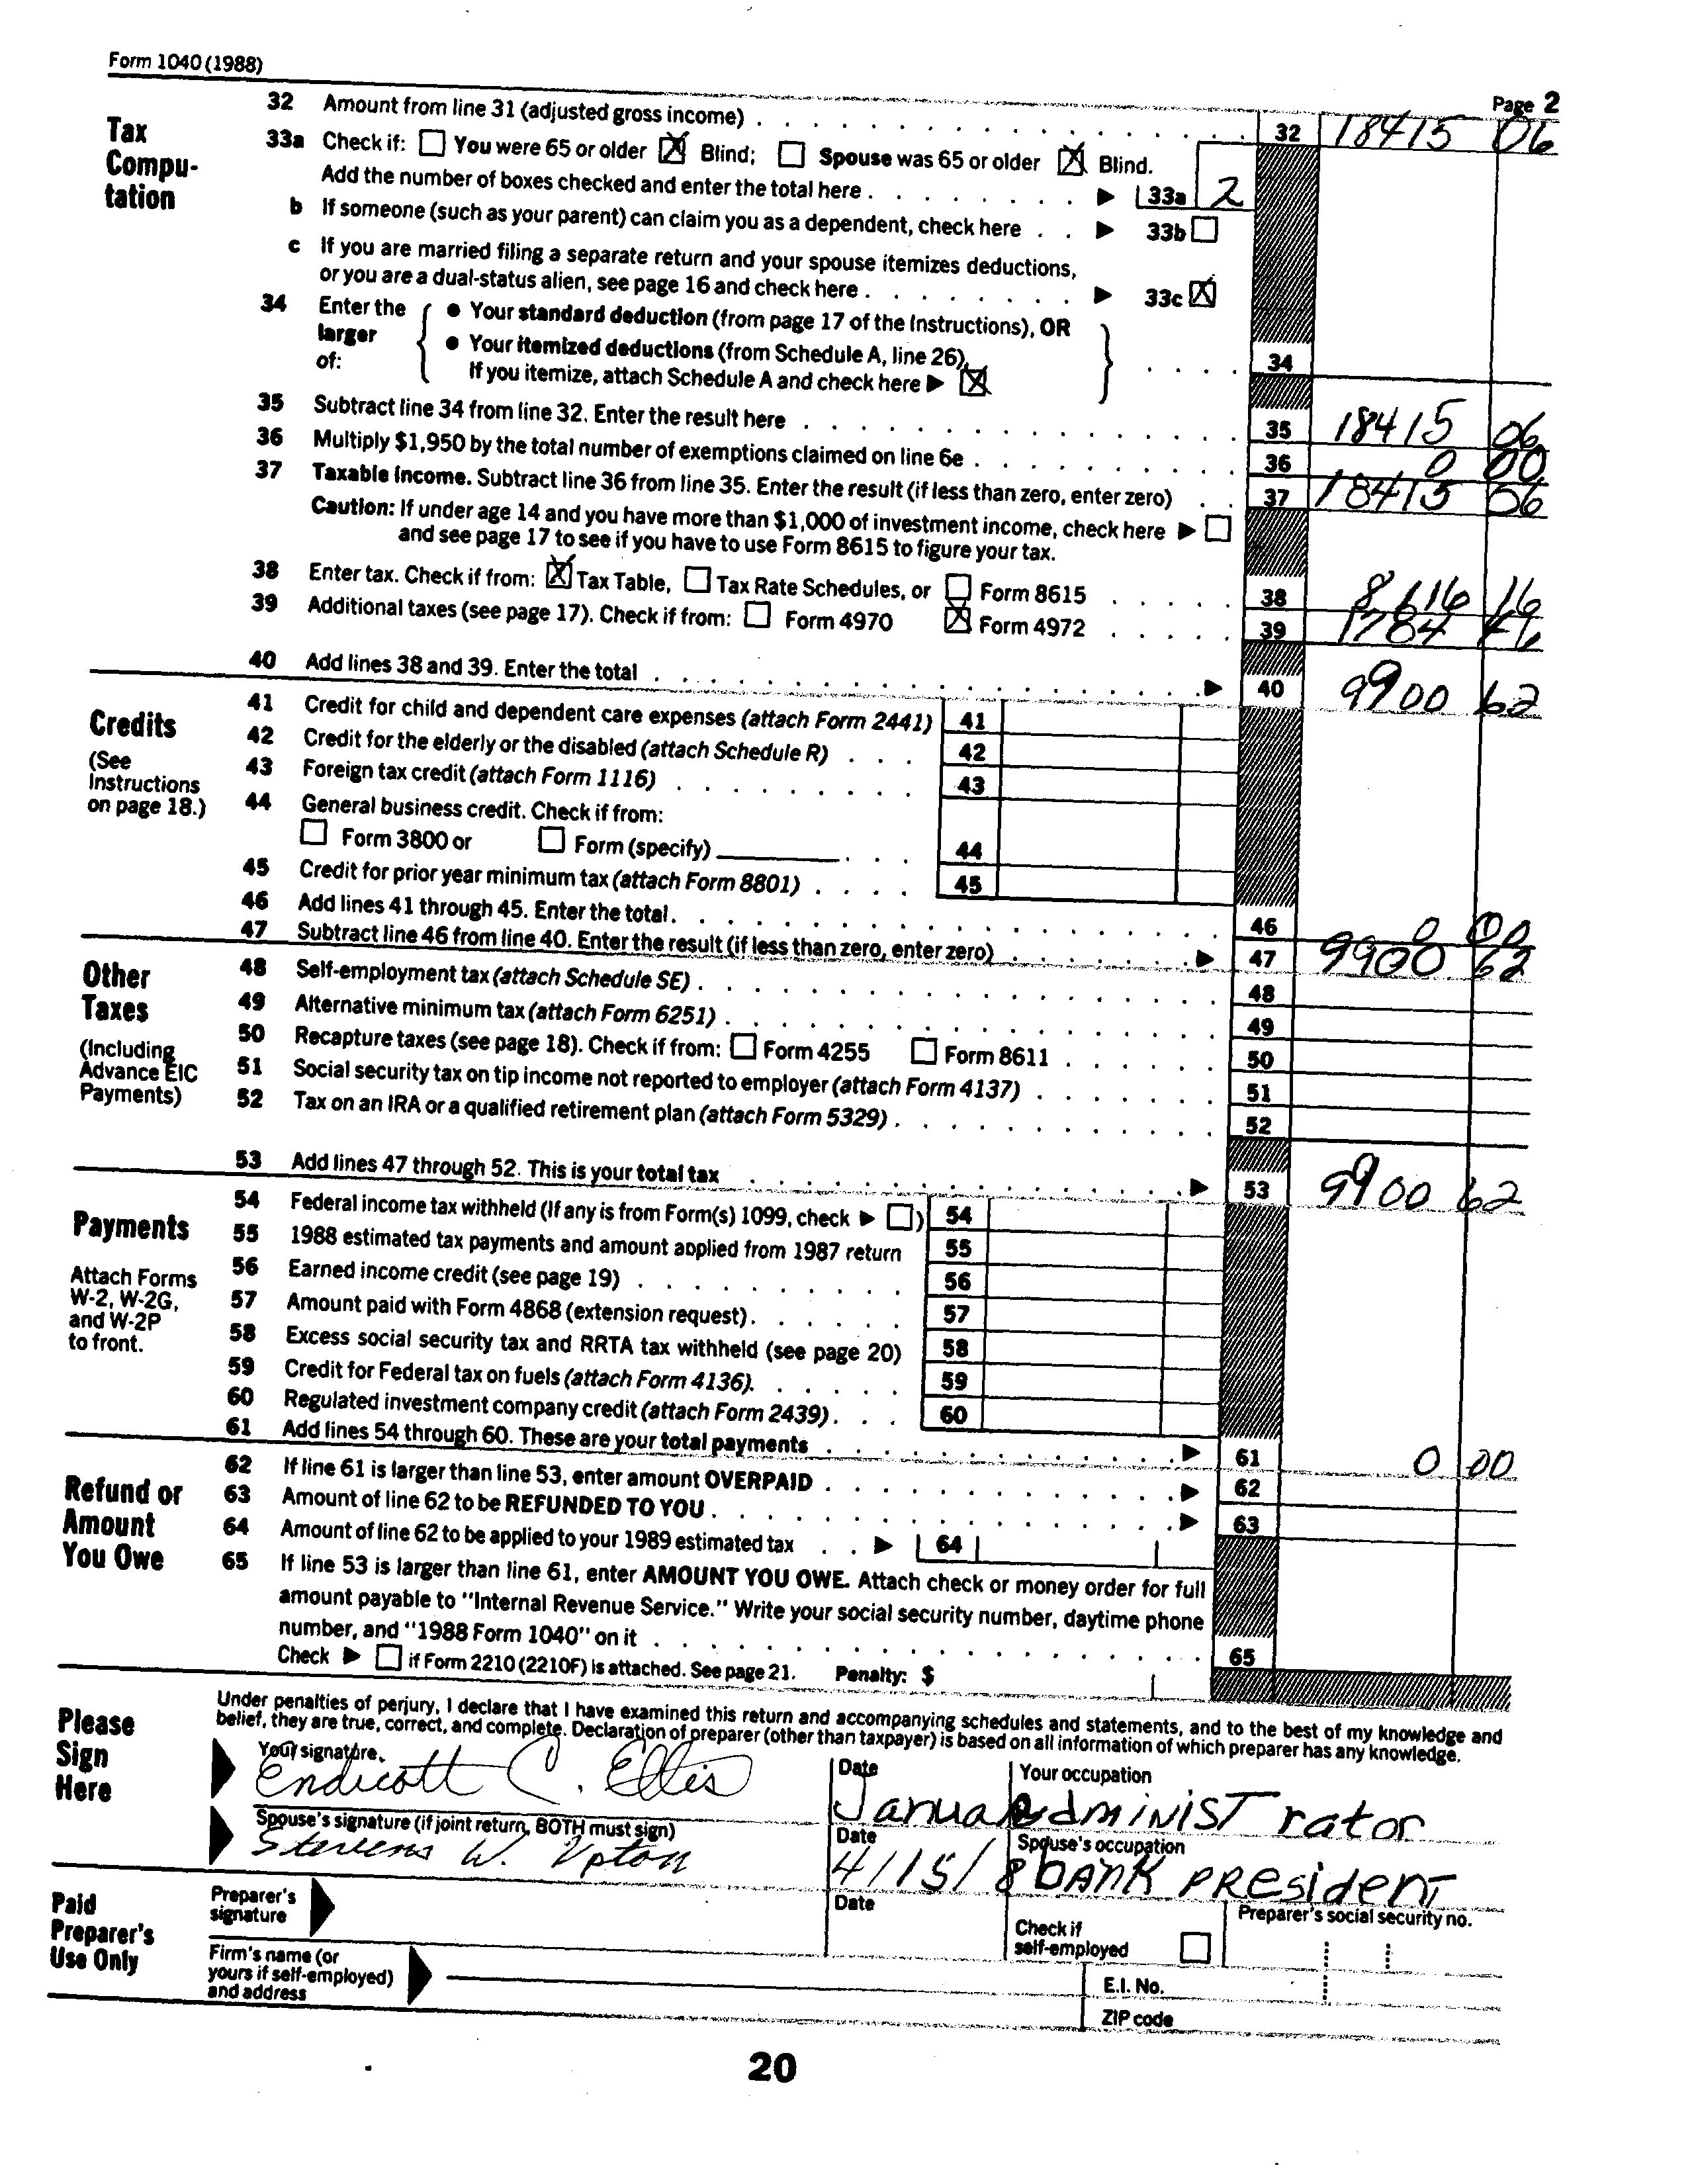 Form 1040 (1988)
Page 2
Tax Compu-tation
32 Amount from line 31 (adjusted gross income) 32 18415 06
33a Check if: You were 65 or older X Blind; Spouse was 65 or older X Blind.
Add the number of boxes checked and enter the total here 33a 2
b If someone (such as your parent) can claim you as a dependent, check here 33b
c If you are married filing a separate return and your spouse itemizes deductions,
or you are a dual-status alien, see page 16 and check here 33c X
34 Enter the larger of:
• Your standard deduction (from page 17 of the Instructions), OR
• Your itemized deductions (from Schedule A, line 26).
If you itemize, attach Schedule A and check here X 34
35 Subtract line 34 from line 32. Enter the result here 35 18415 06
36 Multiply $1,950 by the total number of exemptions claimed on line 6e 36 0 00
37 Taxable income. Subtract line 36 from line 35. Enter the result (if less than zero, enter zero) 37 18415 06
Caution: If under age 14 and you have more than $1,000 of investment income, check here
and see page 17 to see if you have to use Form 8615 to figure your tax.
38 Enter tax. Check if from: X Tax Table, Tax Rate Schedules, or Form 8615 38 8116 16
39 Additional taxes (see page 17). Check if from: Form 4970 X Form 4972 39 1784 46
40 Add lines 38 and 39. Enter the total 40 9900 62
Credits
(See Instructions on page 18.)
41 Credit for child and dependent care expenses (attach Form 2441) 41
42 Credit for the elderly or the disabled (attach Schedule R) 42
43 Foreign tax credit (attach Form 1116) 43
44 General business credit. Check if from:
Form 3800 or Form (specify) 44
45 Credit for prior year minimum tax (attach Form 8801) 45
46 Add lines 41 through 45. Enter the total 46 0 00
47 Subtract line 46 from line 40. Enter the result (if less than zero, enter zero) 47 9900 62
Other Taxes
(Including Advance EIC Payments)
48 Self-employment tax (attach Schedule SE) 48
49 Alternative minimum tax (attach Form 6251) 49
50 Recapture taxes (see page 18). Check if from: Form 4255 Form 8611 50
51 Social security tax on tip income not reported to employer (attach Form 4137) 51
52 Tax on an IRA or a qualified retirement plan (attach Form 5329) 52
53 Add lines 47 through 52. This is your total tax 53 9900 62
Payments
Attach Forms W-2, W-2G, and W-2P to front.
54 Federal income tax withheld (If any is from Form(s) 1099, check ) 54
55 1988 estimated tax payments and amount applied from 1987 return 55
56 Earned income credit (see page 19) 56
57 Amount paid with Form 4868 (extension request) 57
58 Excess social security tax and RRTA tax withheld (see page 20) 58
59 Credit for Federal tax on fuels (attach Form 4136) 59
60 Regulated investment company credit (attach Form 2439) 60
61 Add lines 54 through 60. These are your total payments 61 0 00
Refund or Amount You Owe
62 If line 61 is larger than line 53, enter amount OVERPAID 62
63 Amount of line 62 to be REFUNDED TO YOU 63
64 Amount of line 62 to be applied to your 1989 estimated tax 64
65 If line 53 is larger than line 61, enter AMOUNT YOU OWE. Attach check or money order for full
amount payable to "Internal Revenue Service." Write your social security number, daytime phone
number, and "1988 Form 1040" on it 65
Check if Form 2210 (2210F) is attached. See page 21. Penalty: $
Please Sign Here
Under penalties of perjury, I declare that I have examined this return and accompanying schedules and statements, and to the best of my knowledge and
belief, they are true, correct, and complete. Declaration of preparer (other than taxpayer) is based on all information of which preparer has any knowledge.
Your signature Date Your occupation
Endicott C. Ellis Janua administrator
Spouse's signature (if joint return, BOTH must sign) Date Spouse's occupation
Stevens W. Upton 4/15/8 bank president
Paid Preparer's Use Only
Preparer's signature Date Check if self-employed Preparer's social security no.
Firm's name (or yours if self-employed) and address
E.I. No.
ZIP code
20